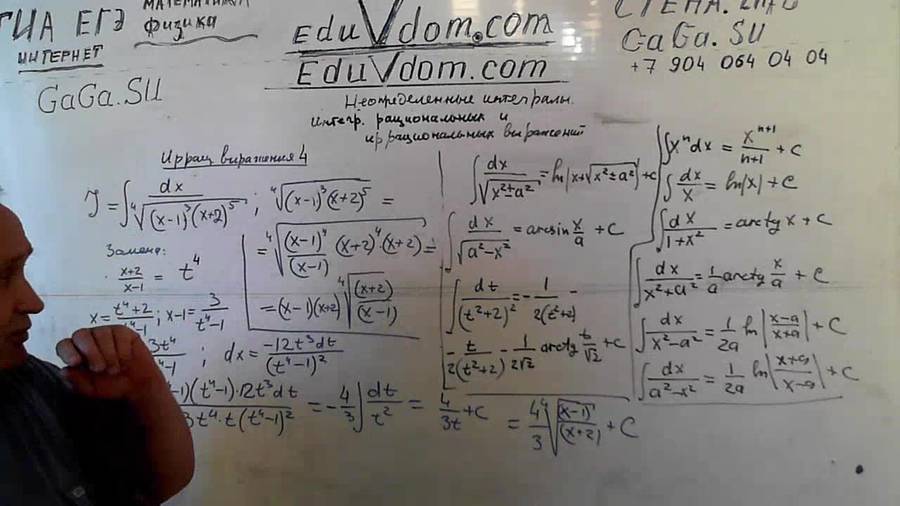 ГИА ЕГЭ
МАТЕМАТИКА
физика
ИНТЕРНЕТ
GaGa.SU
EduVdom.com
EduVdom.com
СТЕНА.
GaGa.SU
+7 904 064 04 04
Неопределенные интегралы.
интегр. рациональных и
иррациональных выражений
Иррац выражения 4
J = ∫ dx / ⁴√((x-1)³(x+2)⁵) ; ⁴√((x-1)³(x+2)⁵) =
= ⁴√((x-1)⁴/(x-1) (x+2)⁴(x+2)) =
= (x-1)(x+2) ⁴√((x+2)/(x-1))
Замена:
(x+2)/(x-1) = t⁴
x = (t⁴+2)/(t⁴-1) ; x-1 = 3/(t⁴-1)
3t⁴/ -1 ; dx = -12t³dt/(t⁴-1)²
-1)(t⁴-1)·12t³dt / 3t⁴·t(t⁴-1)² = -4/3 ∫ dt/t² = 4/3t + C = 4/3 ⁴√((x-1)/(x+2)) + C
∫ dx/√(x²±a²) = ln|x+√(x²±a²)| + C
∫ dx/√(a²-x²) = arcsin x/a + C
∫ dt/(t²+2)² = - 1/2(t²+2) -
- t/2(t²+2) · 1/2√2 arctg t/√2 + C
∫ xⁿdx = xⁿ⁺¹/(n+1) + C
∫ dx/x = ln|x| + C
∫ dx/(1+x²) = arctg x + C
∫ dx/(x²+a²) = 1/a arctg x/a + C
∫ dx/(x²-a²) = 1/2a ln|(x-a)/(x+a)| + C
∫ dx/(a²-x²) = 1/2a ln|(x+a)/(x-a)| + C